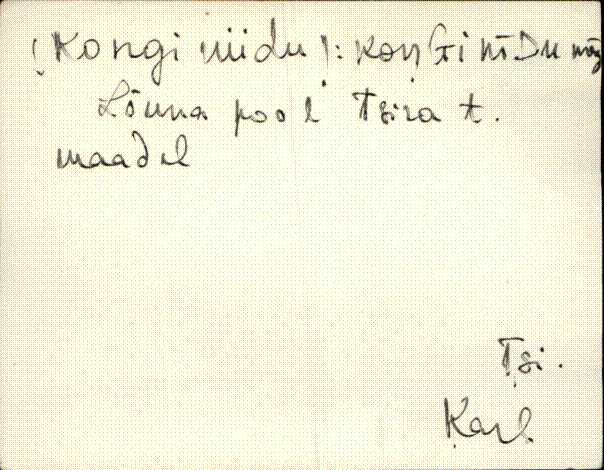 (Kongi niidu): konGi nīDu mäg
Lõuna pool Tsira t.
maadel
Tsi.
Karl.